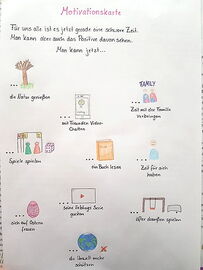 Motivationskarte
Für uns alle ist es jetzt gerade eine schwere Zeit.
Man kann aber auch das Positive davon sehen.
Man kann jetzt...
...
die Natur genießen
...
mit Freunden Video-
Chatten
FAMILY
...
Zeit mit der Familie
verbringen
...
Spiele spielen
...
ein Buch lesen
...
Zeit für sich
haben
...
sich auf Ostern
freuen
...
seine lieblings Serie
gucken
...
länger draußen spielen
...
die Umwelt mehr
schützen